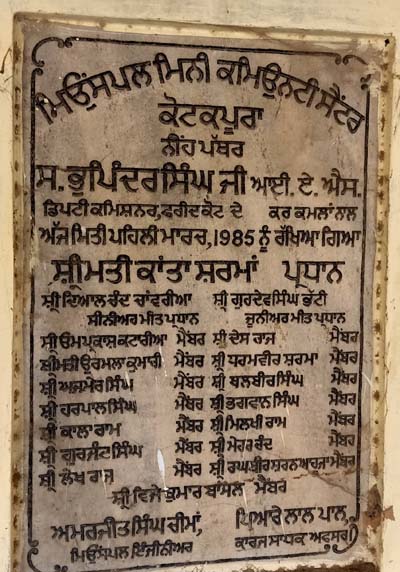 ਮਿਊਂਸਪਲ ਮਿਨੀ ਕਮਿਊਨਟੀ ਸੈਂਟਰ
ਕੋਟਕਪੂਰਾ
ਨੀਂਹ ਪੱਥਰ
ਸ. ਭੁਪਿੰਦਰ ਸਿੰਘ ਜੀ ਆਈ. ਏ. ਐਸ.
ਡਿਪਟੀ ਕਮਿਸ਼ਨਰ, ਫਰੀਦਕੋਟ ਦੇ ਕਰ ਕਮਲਾਂ ਨਾਲ
ਅੱਜ ਮਿਤੀ ਪਹਿਲੀ ਮਾਰਚ, 1985 ਨੂੰ ਰੱਖਿਆ ਗਿਆ
ਸ਼੍ਰੀਮਤੀ ਕਾਂਤਾ ਸ਼ਰਮਾਂ ਪ੍ਰਧਾਨ
ਸ਼੍ਰੀ ਦਿਆਲ ਚੰਦ ਚਾਂਵਰੀਆ ਸ਼੍ਰੀ ਗੁਰਦੇਵ ਸਿੰਘ ਭੱਟੀ
ਸੀਨੀਅਰ ਮੀਤ ਪ੍ਰਧਾਨ ਜੂਨੀਅਰ ਮੀਤ ਪ੍ਰਧਾਨ
ਸ਼੍ਰੀ ਓਮ ਪ੍ਰਕਾਸ਼ ਕਟਾਰੀਆ ਮੈਂਬਰ ਸ਼੍ਰੀ ਦੇਸ ਰਾਜ ਮੈਂਬਰ
ਸ਼੍ਰੀਮਤੀ ਉਰਮਲਾ ਕੁਮਾਰੀ ਮੈਂਬਰ ਸ਼੍ਰੀ ਧਰਮਵੀਰ ਸ਼ਰਮਾ ਮੈਂਬਰ
ਸ਼੍ਰੀ ਅਜਮੇਰ ਸਿੰਘ ਮੈਂਬਰ ਸ਼੍ਰੀ ਬਲਬੀਰ ਸਿੰਘ ਮੈਂਬਰ
ਸ਼੍ਰੀ ਹਰਪਾਲ ਸਿੰਘ ਮੈਂਬਰ ਸ਼੍ਰੀ ਭਗਵਾਨ ਸਿੰਘ ਮੈਂਬਰ
ਸ਼੍ਰੀ ਕਾਲਾ ਰਾਮ ਮੈਂਬਰ ਸ਼੍ਰੀ ਮਿਲਖੀ ਰਾਮ ਮੈਂਬਰ
ਸ਼੍ਰੀ ਗੁਰਜੰਟ ਸਿੰਘ ਮੈਂਬਰ ਸ਼੍ਰੀ ਮੇਹਰ ਚੰਦ ਮੈਂਬਰ
ਸ਼੍ਰੀ ਲੇਖ ਰਾਜ ਮੈਂਬਰ ਸ਼੍ਰੀ ਰਘਬੀਰ ਸ਼ਰਨ ਮੈਂਬਰ
ਸ਼੍ਰੀ ਵਿਜੇ ਕੁਮਾਰ ਬਾਂਸਲ ਮੈਂਬਰ
ਅਮਰਜੀਤ ਸਿੰਘ ਚੀਮਾਂ, ਪਿਆਰੇ ਲਾਲ ਪਾਲ,
ਮਿਊਂਸਪਲ ਇੰਜੀਨੀਅਰ ਕਾਰਜ ਸਾਧਕ ਅਫਸਰ